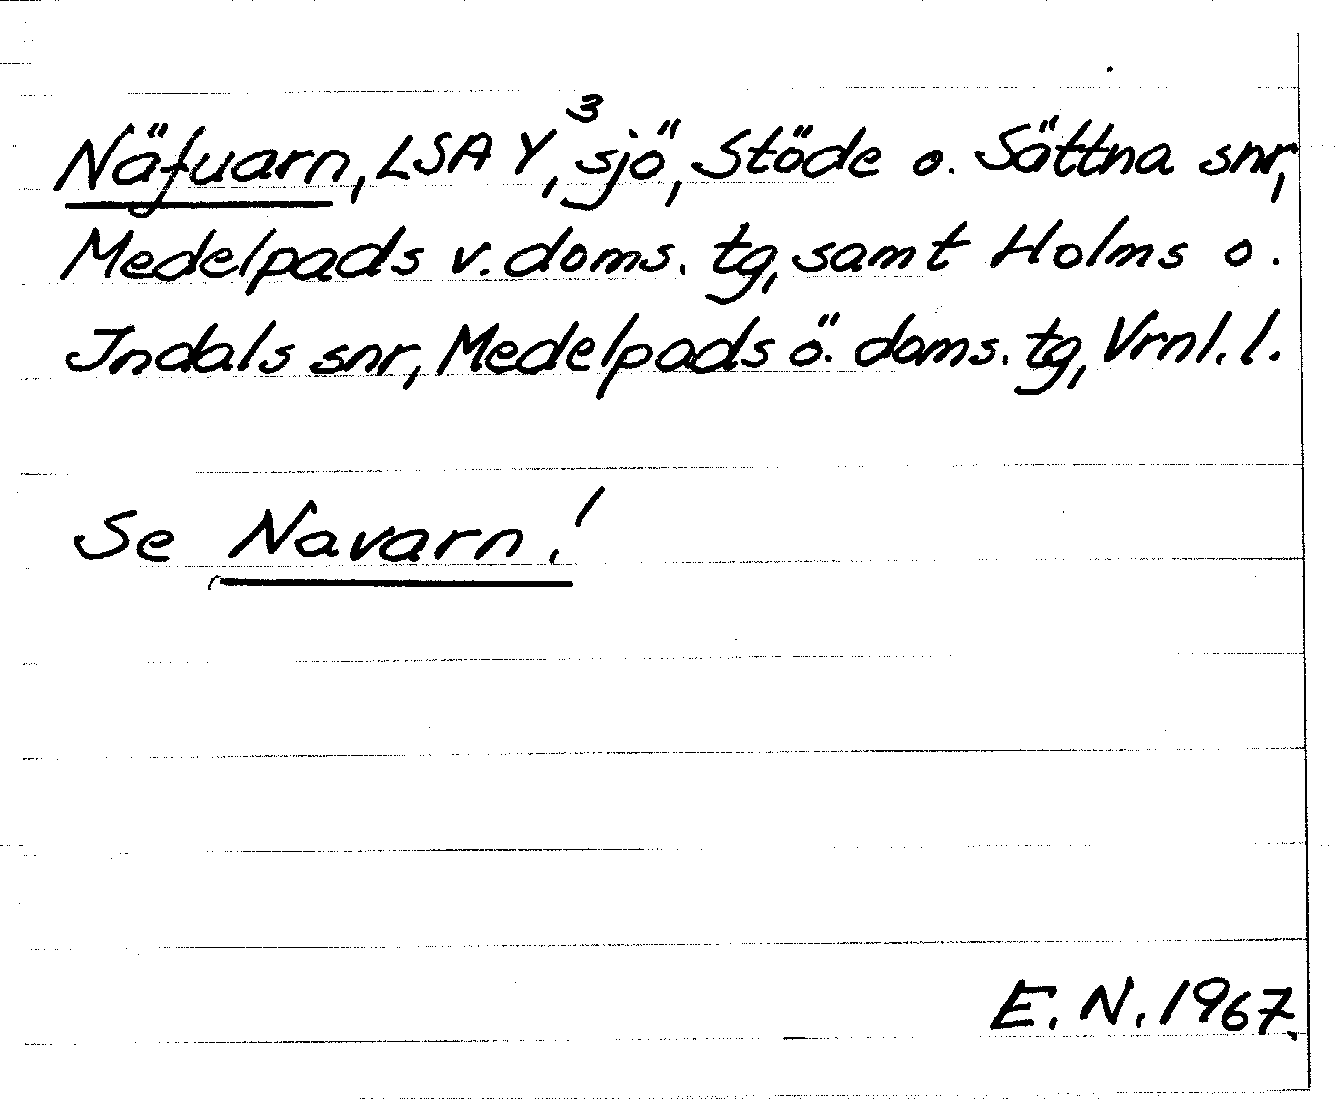 Näfuarn, LSA Y³, sjö, Stöde o. Sättna snr,
Medelpads v. doms. tg, samt Holms o.
Indals snr, Medelpads ö. doms. tg, Vrnl. l.
Se Navarn!
E. N. 1967.